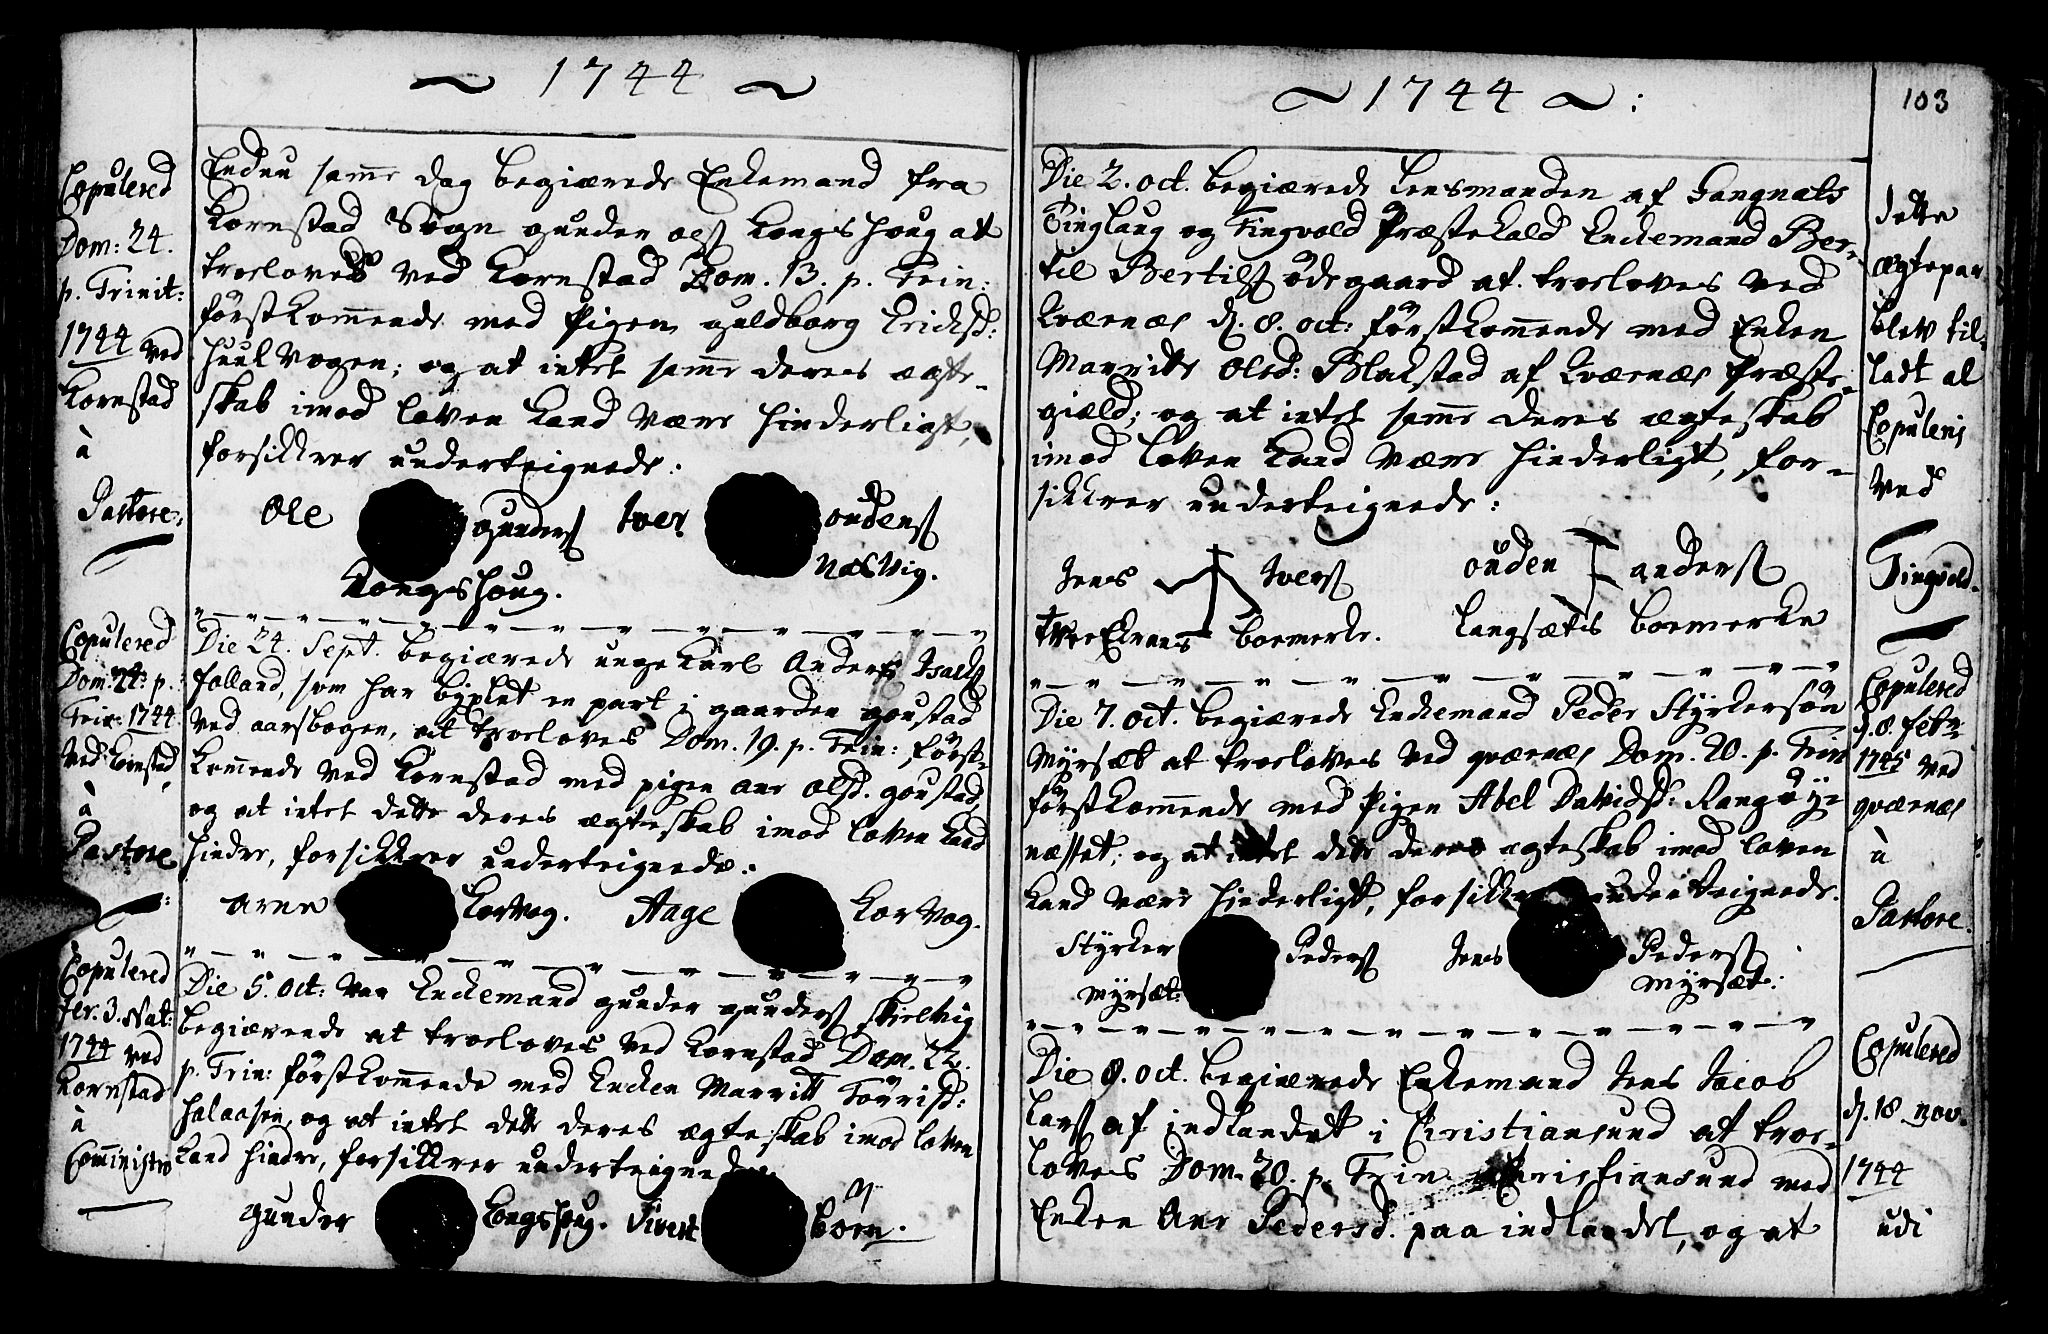 1744
Copulered
Dom: 24.
p. Trinit:
1744 ved
Kornstad
à
Pastore.
Endnu samme dag begiærede Enkemand fra
Kornstad Sogn gunder ols Kongshoug at
troeloves ved Kornstad Dom. 13. p. Trin:
förstkommende med Pigen guldborg Ericksd:
huulvogen; og at intet samme deres ægte-
skab imod loven kand være hinderligt,
forsikkrer underteignede:
Ole gunders Iver oudens
Kongshoug. Næsvig.
Copulered
Dom: 24. p.
Trin: 1744.
ved Kornstad
à
Pastore
Die 24. Sept. begiærede unge Karl Anders Isaks
folland, som har byxlet en part i gaarden goustad
ved aarsbogen, at troeloves Dom. 19. p. Trin: först-
kommende ved Kornstad med pigen ane olsd. goustad,
og at intet dette deres ægteskab imod loven kand
hindre, forsikkrer underteignede.
Arne Korvog. Aage Korvog.
Copulered
fer. 3. Nat:
1744 ved
Kornstad
à
Comministro
Die 5. oct: var Enckemand gunder gunders Skielvig
begiærende at troeloves ved Kornstad Dom. 22.
p. Trin: förstkommende med Encken Marritt Torrisd:
halaasen, og at intet dette deres ægteskab imod loven
kand hindre, forsikkrer underteignede
gunder Kongshoug. Sivert Börn.
1744
103
Die 2. oct. begiærede lensmanden af Gangnats
Tinglaug og Tingvold Præstekald Enckemand Ber-
til Bertils ödegaard at troeloves ved
Kværnæs d. 8. oct: förstkommende med Enken
Marritte Olsd: Blakstad af Kværnæs Præste-
giæld; og at intet samme deres ægteskab
imod loven kand være hinderligt, for-
sikkrer underteignede:
Jens Ivers ouden anders
boemerke. Langsætes boemerke
dette
ægtepar
blev til-
ladt at
Copuleris
ved
Tingvold.
Die 7. oct. begiærede Enckemand Peder Styrkersön
Myrsæt at troeloves ved qværnæs Dom. 20. p. Trin
förstkommende med Pigen Abel Davidsd: Rangöye
næsset; og at intet dette deres ægteskab imod loven
kand være hinderligt, forsikkrer underteignede.
Styrker Peders Jens Peders
Myrsæt: Myrsæt:
Copulered
d. 8. febr
1745 ved
qværnæs
à
Pastore.
Die 8. oct. begiærede Enkemand Jens Jacob
Lars af indlandet i Christiansund at troe-
loves Dom. 20. p. Trin i Christiansund med
Enken Ane Pedersd. paa indlandet, og at
Copulered
d. 18. nov.
1744
udi